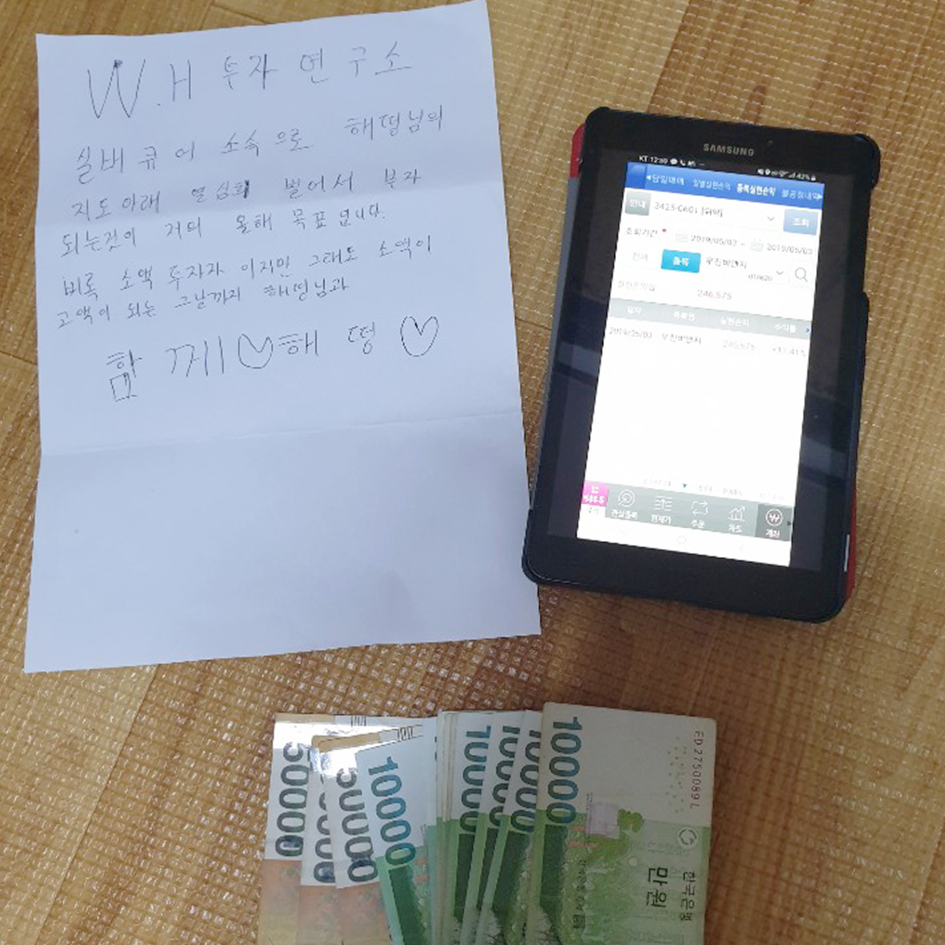 W.H 투자연구소
실버큐어 소속으로 해떵님의
지도아래 열심히 벌어서 부자
되는것이 저의 올해 목표입니다.
비록 소액 투자자 이지만 그래도 소액이
고액이 되는 그날까지 해떵님과
함께♡해떵♡
SAMSUNG
KT 12:50
42%
당일매매 일별실현손익 종목실현손익
안내 조회
조회기간 2019/05/03 ~ 2019/05/03
전체 종목 우진비앤지
246,575
2019/05/03 우진비앤지 246,575
관심종목 현재가 주문 차트 계좌
50000
50000
50000
10000
10000
10000
10000
10000
FD2750089L
한국은행
만원